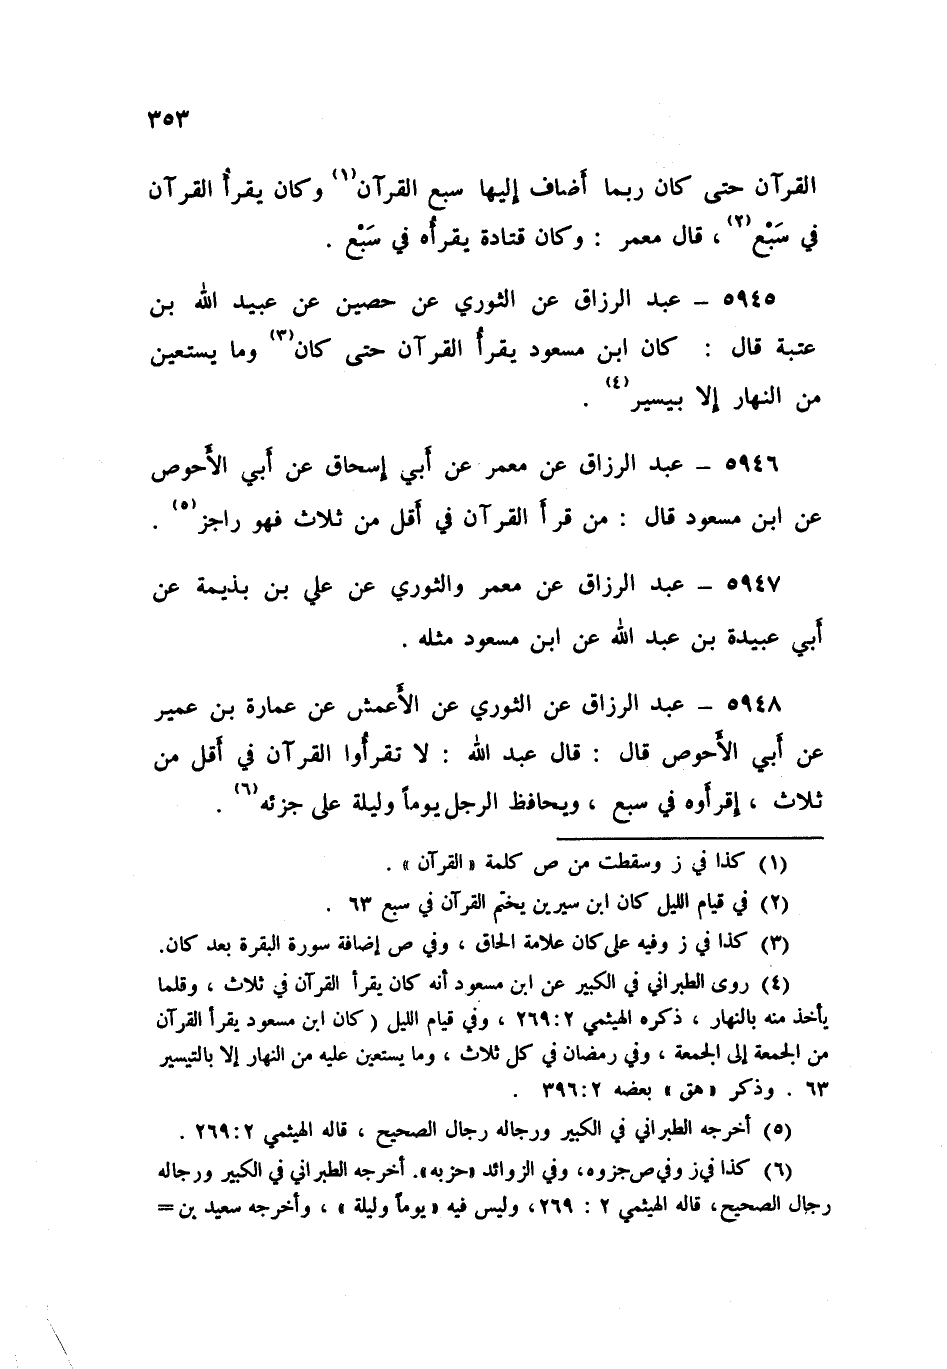 ٣٥٣
القرآن حتى كان ربما أضاف إليها سبع القرآن(١) وكان يقرأ القرآن
في سَبْع(٢) ، قال معمر : وكان قتادة يقرأه في سَبْع .
٥٩٤٥ – عبد الرزاق عن الثوري عن حصين عن عبيد الله بن
عتبة قال : كان ابن مسعود يقرأ القرآن حتى كان(٣) وما يستعين
من النهار إلا بيسير(٤) .
٥٩٤٦ – عبد الرزاق عن معمر عن أبي إسحاق عن أبي الأحوص
عن ابن مسعود قال : من قرأ القرآن في أقل من ثلاث فهو راجز(٥) .
٥٩٤٧ – عبد الرزاق عن معمر والثوري عن علي بن بذيمة عن
أبي عبيدة بن عبد الله عن ابن مسعود مثله .
٥٩٤٨ – عبد الرزاق عن الثوري عن الأعمش عن عمارة بن عمير
عن أبي الأحوص قال : قال عبد الله : لا تقرأوا القرآن في أقل من
ثلاث ، إقرأوه في سبع ، ويحافظ الرجل يوماً وليلة على جزئه(٦) .
(١) كذا في ز وسقطت من ص كلمة «القرآن» .
(٢) في قيام الليل كان ابن سيرين يختم القرآن في سبع ٦٣ .
(٣) كذا في ز وفيه على كان علامة الحاق ، وفي ص إضافة سورة البقرة بعد كان.
(٤) روى الطبراني في الكبير عن ابن مسعود أنه كان يقرأ القرآن في ثلاث ، وقلما
يأخذ منه بالنهار ، ذكره الهيثمي ٢٦٩:٢ ، وفي قيام الليل ( كان ابن مسعود يقرأ القرآن
من الجمعة إلى الجمعة ، وفي رمضان في كل ثلاث ، وما يستعين عليه من النهار إلا بالتيسير
٦٣ . وذكر «هق» بعضه ٣٩٦:٢ .
(٥) أخرجه الطبراني في الكبير ورجاله رجال الصحيح ، قاله الهيثمي ٢٦٩:٢ .
(٦) كذا في ز وفي ص جزوه، وفي الزوائد «حزبه». أخرجه الطبراني في الكبير ورجاله
رجال الصحيح، قاله الهيثمي ٢ : ٢٦٩، وليس فيه «يوماً وليلة» ، وأخرجه سعيد بن =